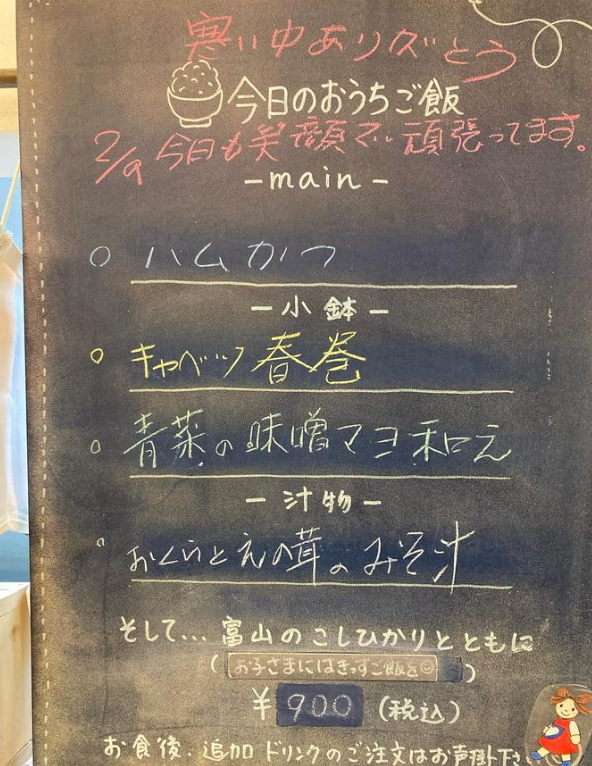 寒い中ありがとう
今日のおうちご飯
2/9 今日も笑顔で頑張ってます。
-main-
○ ハムかつ
-小鉢-
○ キャベツ春巻
○ 青菜の味噌マヨ和え
-汁物-
○ おくらとえの茸のみそ汁
そして...富山のこしひかりとともに
(お子さまにはきっずご飯を☺)
¥900(税込)
お食後、追加ドリンクのご注文はお声掛下さい